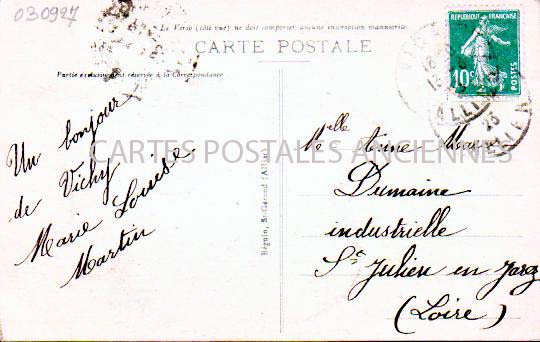 030927
Le Verso (côté vue) ne doit comporter aucune inscription manuscrite
CARTE POSTALE
Partie exclusivement réservée à la Correspondance
RÉPUBLIQUE FRANÇAISE
10c
POSTES
ALLIER
25
Un bonjour
de Vichy
Marie Louise
Martin
CARTES POSTALES ANCIENNES
Béguin, St-Gérand (Allier)
Melle
Dumaine
industrielle
St Julien en Jarez
(Loire)